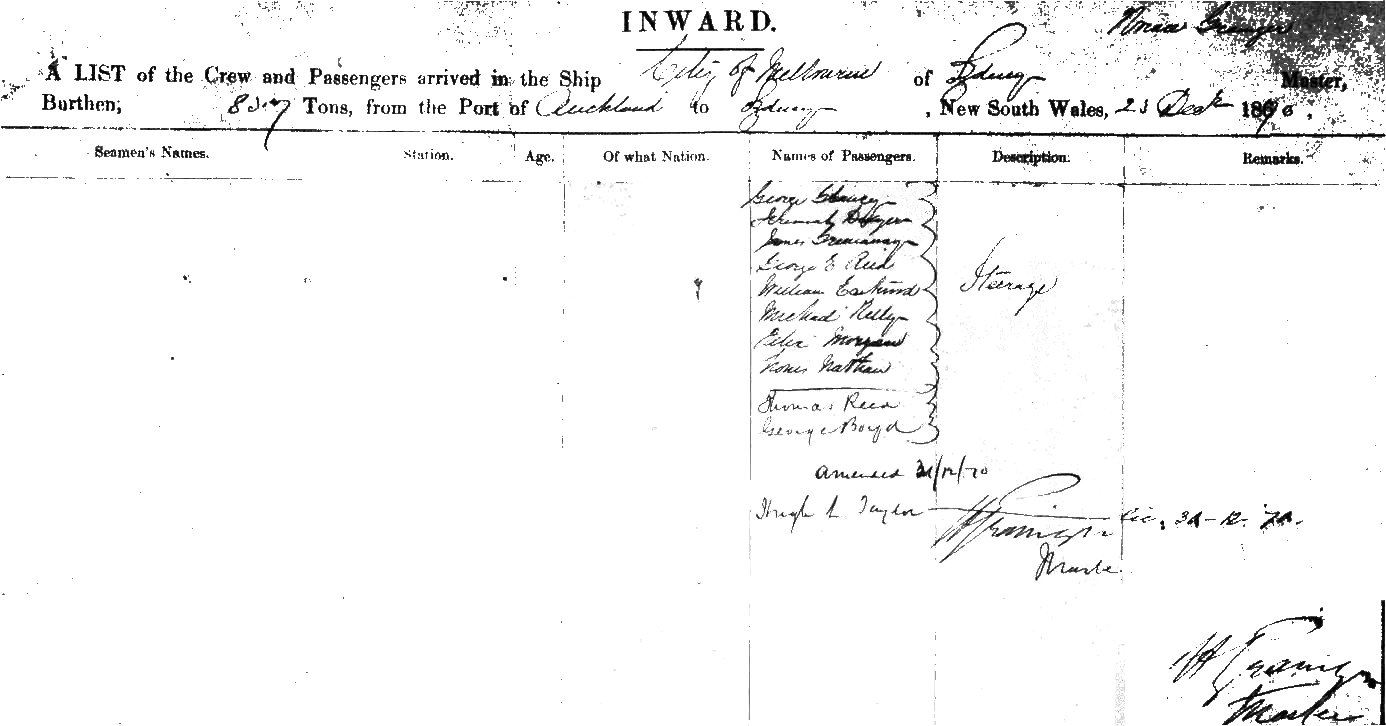 INWARD.
Grainger
A LIST of the Crew and Passengers arrived in the Ship City of Melbourne of Sydney Master,
Burthen, Tons, from the Port of Auckland to Sydney, New South Wales, 23 Decr 1870.
Seamen's Names. Station. Age. Of what Nation. Names of Passengers. Description. Remarks.
George
Jeremiah Dwyer
James Greenaway
George E Reed
William
Michael Kelly
Morgan
Nathan
Steerage
Thomas Reed
George Boyd
amended 31/12/70
Hugh L Taylor
H Grainger
Master
H Grainger
Master